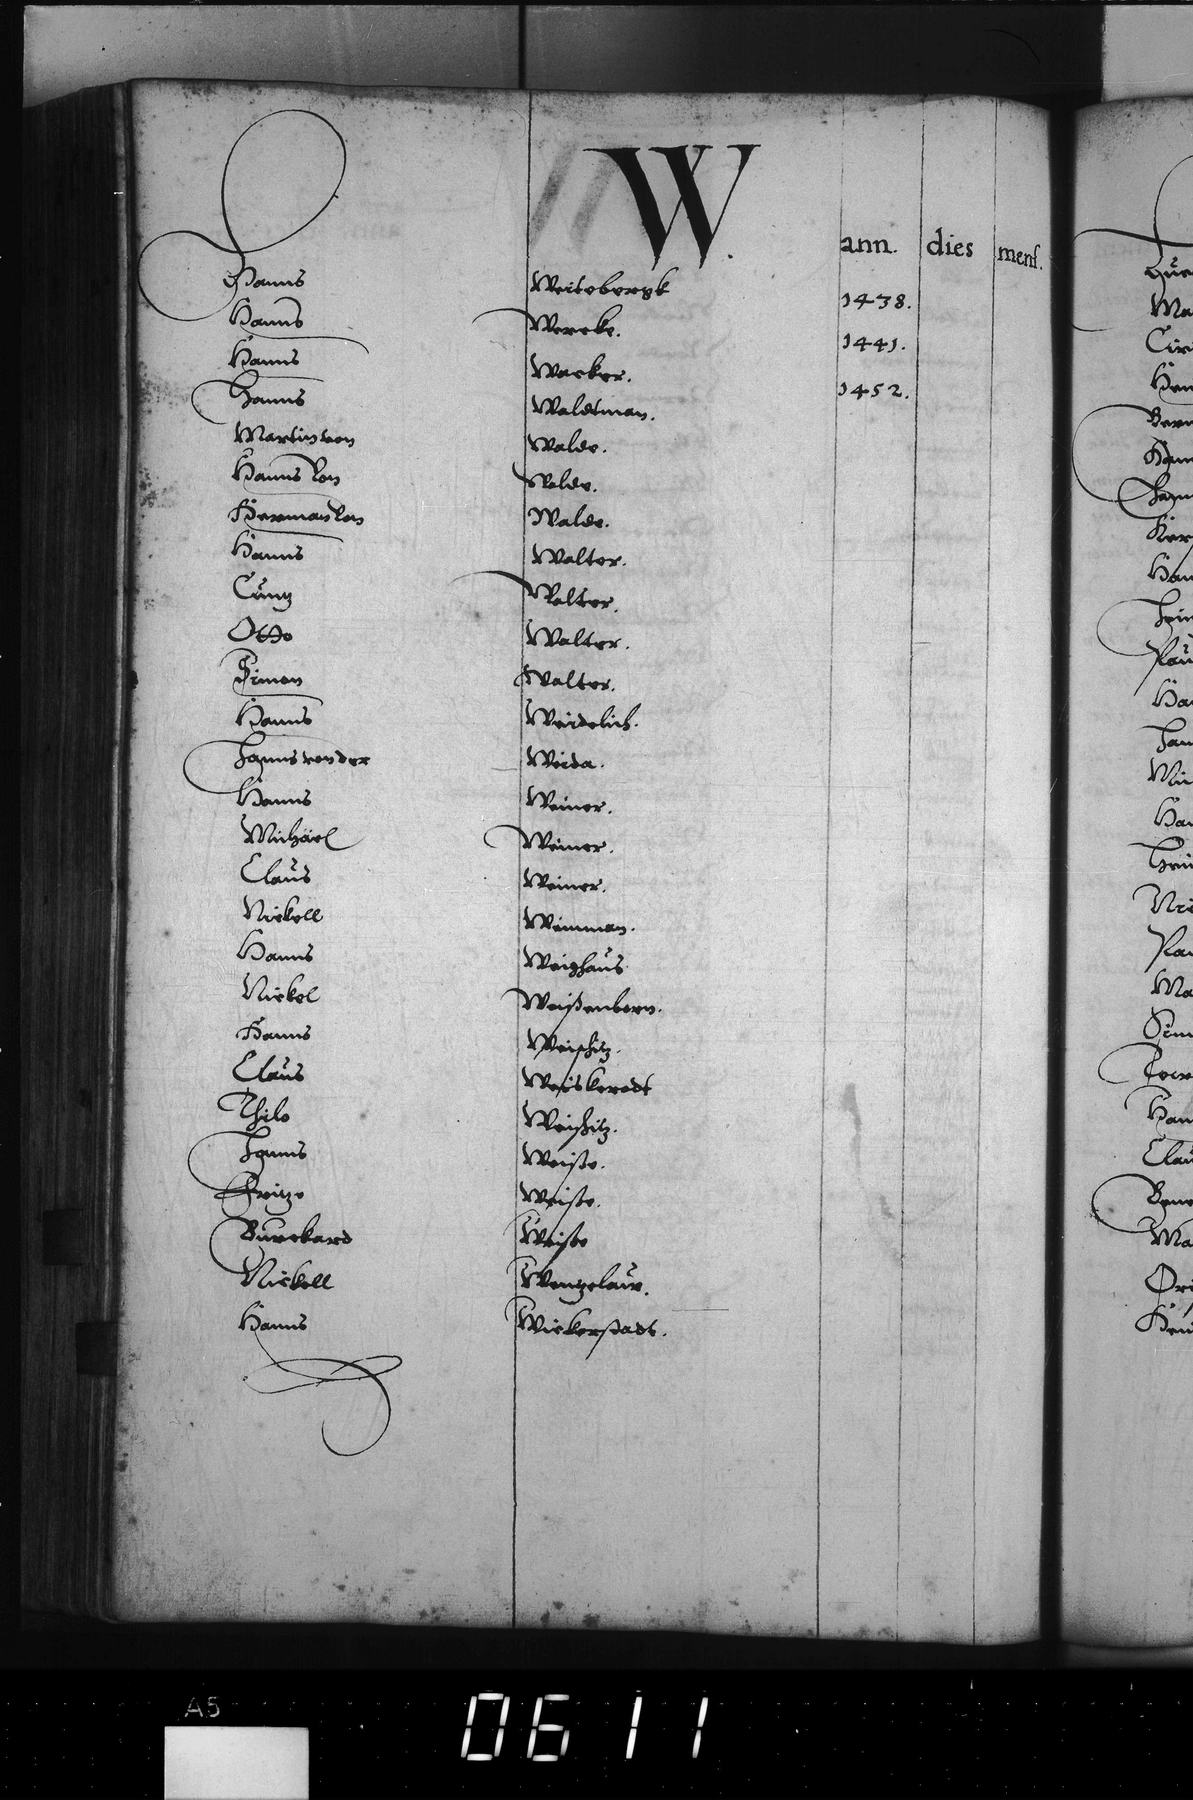 W
ann. dies mens.
Hanns Weitebergk 1438.
Hanns Wercke. 1441.
Hanns Wacker. 1452.
Hanns Waldtman.
Martin von Walde.
Hanns Von Walde.
Herman Von Walde.
Hanns Walter.
Cuntz Walter.
Otto Walter.
Simon Walter.
Hanns Weidelich.
Hanns von der Weida.
Hanns Weiner.
Michäel Weiner.
Claus Weiner.
Nickell Weinman.
Hanns Weighaus
Nickel Weißenborn.
Hanns
Claus Weiskerodt
Thilo Weißitz.
Hanns Weiße.
Fritze Weiße.
Burckard Weiße
Nickell Wentzelaw.
Hanns Wickerstadt.
A5
0611